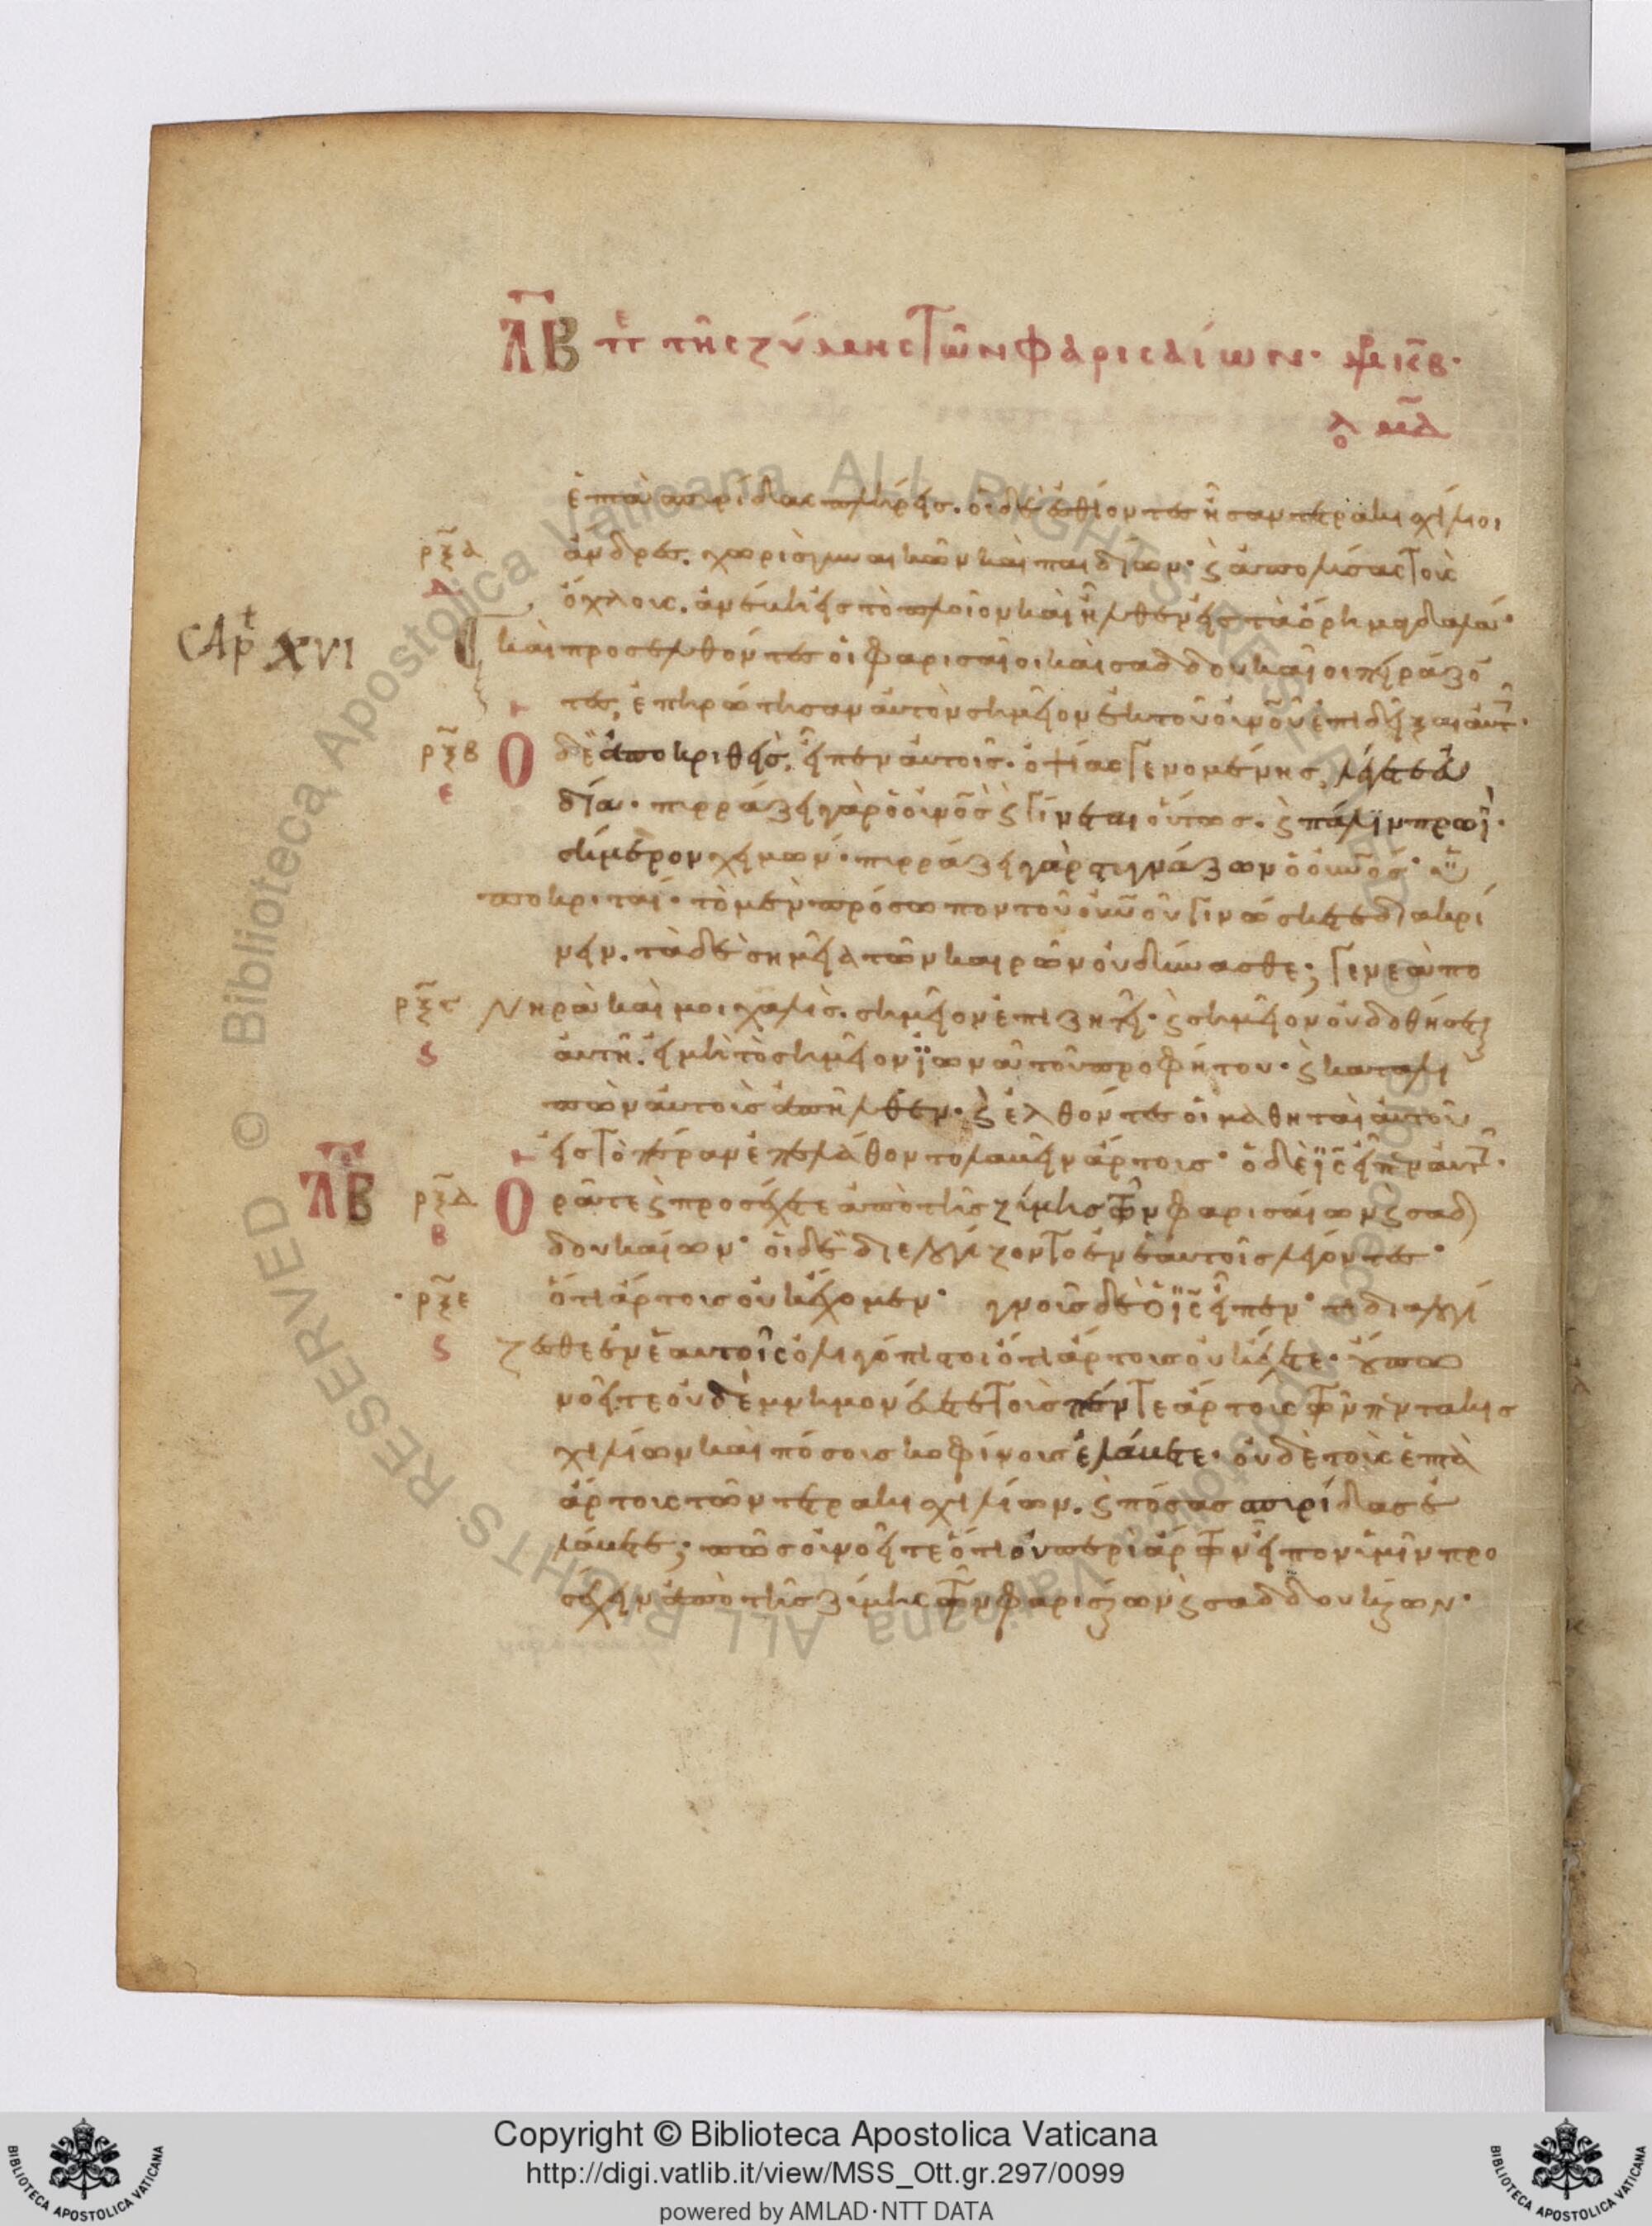 ΛΒ π̅ε τῆς ζύμης τῶν φαρισαίων·
ἑπτὰ σπυρίδας πλήρεις. οἱ δὲ ἐσθίοντες ἦσαν τετρακισχίλιοι
ρξα ἄνδρες. χωρὶς γυναικῶν καὶ παιδίων· ϛ ἀπολύσας τοὺς
ὄχλους. ἀνέβη εἰς τὸ πλοῖον καὶ ἦλθεν εἰς τὰ ὅρη μαγδαλά·
CAP XVI καὶ προσελθόντες οἱ φαρισαῖοι καὶ σαδδουκαῖοι πειράζο
τες, ἐπηρώτησαν αὐτὸν σημεῖον ἐκ τοῦ οὐνοῦ ἐπιδεῖξαι αὐτ·
ρξβ Ο δὲ ἀποκριθεὶς. εἶπεν αὐτοῖς. ὀψίας γενομένης, λέγετε εὐ
ε
δία· πυρράζει γὰρ ὁ οὐνος ϛ γίνεται οὕτως. ϛ πάλιν πρωῒ·
σήμερον χειμών· πυρράζει γὰρ στυγνάζων ὁ οὐνος· ὑ
ποκριταί· τὸ μὲν πρόσωπον τοῦ οὐνοῦ γινώσκετε διακρί
νειν. τὰ δὲ σημεῖα τῶν καιρῶν οὐ δύνασθε; γενεὰ πο
νηρὰ καὶ μοιχαλὶς. σημεῖον ἐπιζητεῖ· ϛ σημεῖον οὐ δοθήσεται
ϛ αὐτῆ. εἰ μὴ τὸ σημεῖον ϊωνᾶ τοῦ προφήτου· ϛ καταλι
πὼν αὐτοὺς ἀπῆλθεν. ϛ ἐλθόντες οἱ μαθηταὶ αὐτοῦ
εἰς τὸ πέραν ἐπελάθοντο λαβεῖν ἄρτους· ὁ δὲ ϊς εἶπεν αὐτ·
ΛΒ ρξδ Ο ρᾶτε ϛ προσέχετε ἀπὸ τῆς ζύμης τῶν φαρισαίων ϛ σαδ
β δουκαίων· οἱ δὲ διελογίζοντο ἐν ἑαυτοῖς λέγοντες·
ρξε ὅτι ἄρτους οὐκ ἔχομεν· γνοὺς δὲ ὁ ϊς εἶπεν· τί διαλογί
ϛ ζεσθε ἐν ἑαυτοῖς ὀλιγόπιστοι ὅτι ἄρτους οὐκ ἔχετε· οὔπω
νοεῖτε οὐδὲ μνημονεύετε τοὺς πέντε ἄρτους τῶν πεντακις
χιλίων καὶ πόσους κοφίνους ἐλάβετε· οὐδὲ τοὺς ἑπτὰ
ἄρτους τῶν τετρακισχιλίων. ϛ πόσας σπυρίδας ἐ
λάβετε; πῶς οὐ νοεῖτε ὅτι οὐ περὶ ἄρτων εἶπον ὑμῖν προ
σέχειν ἀπὸ τῆς ζύμης τῶν φαρισαίων ϛ σαδδουκαίων·
Copyright © Biblioteca Apostolica Vaticana
http://digi.vatlib.it/view/MSS_Ott.gr.297/0099
powered by AMLAD·NTT DATA